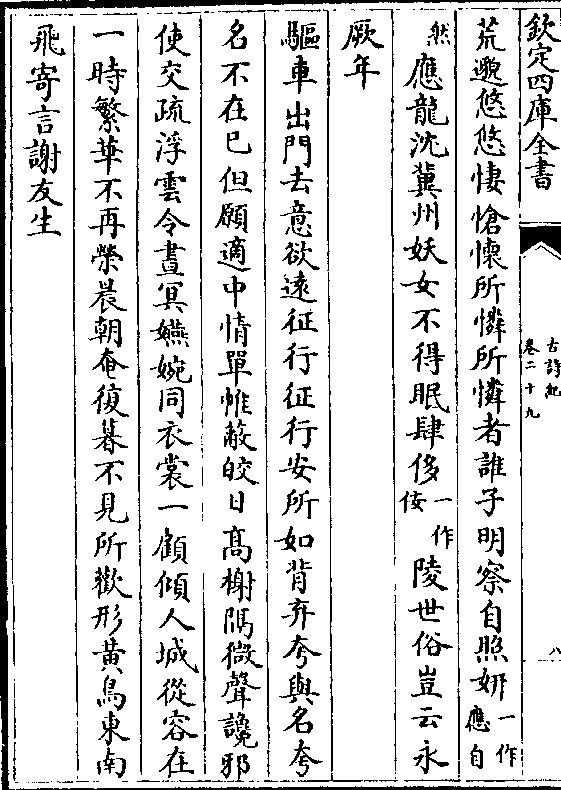 欽定四庫全書
古詩紀
卷二十九
八
荒邈悠悠悽愴懷所憐所憐者誰子明察自照妍一作應自
然應龍沈冀州妖女不得眠肆侈一作佞陵世俗豈云永
厥年
驅車出門去意欲遠征行征行安所如背弃夸與名夸
名不在已但願適中情單帷蔽皎日高榭隔微聲讒邪
使交疏浮雲令晝冥嬿婉同衣裳一顧傾人城從容在
一時繁華不再榮晨朝奄復暮不見所歡形黃鳥東南
飛寄言謝友生